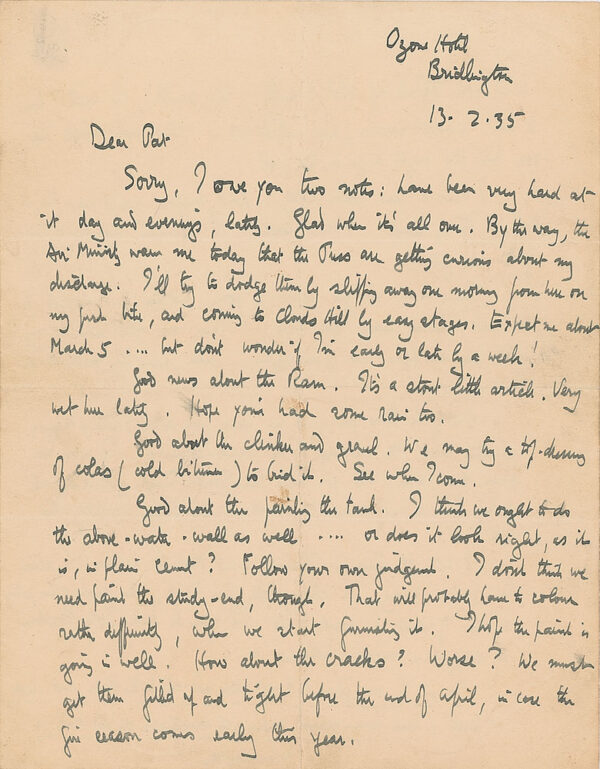 Ozone Hotel
Bridlington
13. 2. 35
Dear Pat
Sorry, I owe you two notes: have been very hard at
it day and evenings, lately. Glad when it's all over. By the way, the
Air Ministry warn me today that the Press are getting curious about my
discharge. I'll try to dodge them by slipping away one morning from here on
my push bike, and coming to Clouds Hill by easy stages. Expect me about
March 5 .... but don't wonder if I'm early or late by a week!
Good news about the Ram. It's a stout little article. Very
wet here lately. Hope you've had some rain too.
Good about the clinker and gravel. We may try a top-dressing
of colas (cold bitumen) to bind it. See when I come.
Good about the painting the tank. I think we ought to do
the above-water-wall as well .... or does it look right, as it
is, in plain cement? Follow your own judgement. I don't think we
need paint the study-end, though. That we'll probably have to colour
rather differently, when we start furnishing it. I hope the paint is
going in well. How about the cracks? Worse? We must
get them filled up and tight before the end of April, in case the
fire season comes early this year.